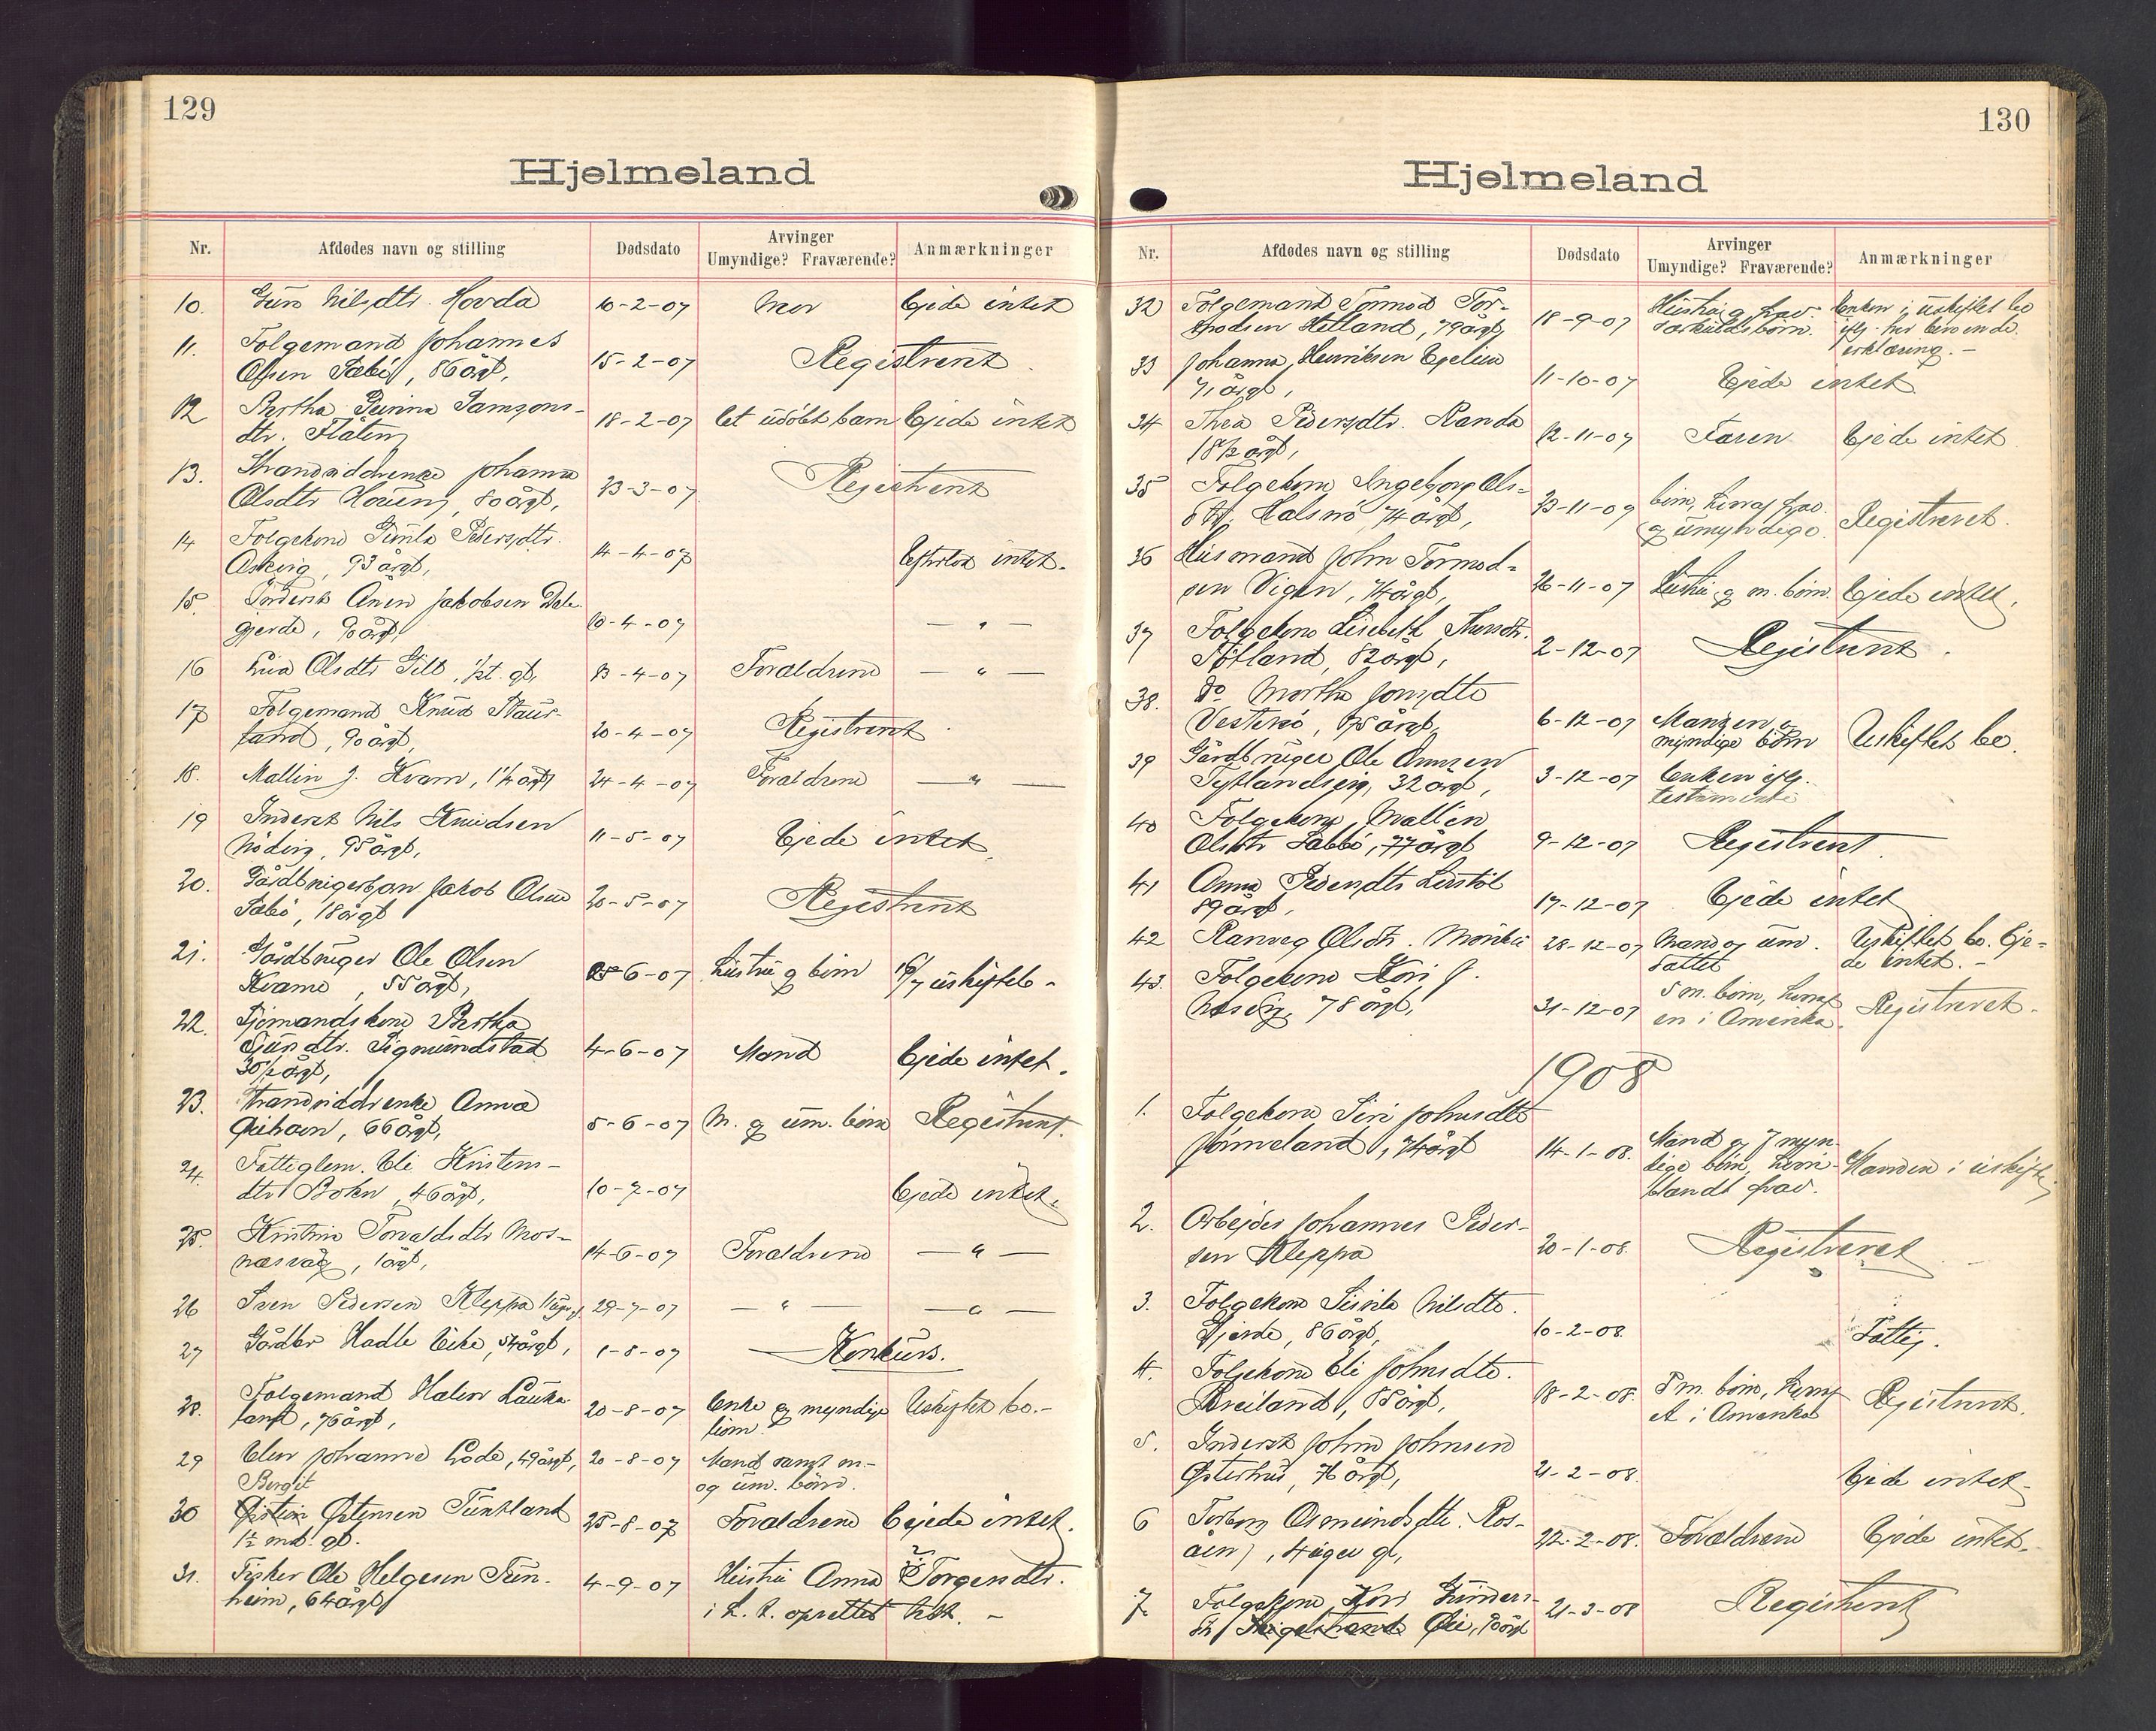 129
Hjelmeland
Nr. Afdødes navn og stilling Dødsdato Arvinger Umyndige? Fraværende? Anmærkninger
10. Guro Nilsdtr. Hovda 10-2-07 Mor Ejede intet
11. Følgemand Johannes
Olsen Sæbø, 86 årgl, 15-2-07 Registreret
12 Bertha Gurina Samsons-
dtr. Flåten 18-2-07 Et udøbt barn Ejede intet
13. Strandsidderenke Johanna
Olsdtr Hauen, 80 årgl, 23-3-07 Registreret
14 Følgekone Gunla Pedersdtr.
Askvig, 93 årgl, 14-4-07 Efterlod intet.
15. Inderst Ånen Jakobsen Dale-
gjerde, 90 årgl, 10-4-07 — " —
16 Lisa Olsdtr Gilt, 1/2t. gl, 13-4-07 Forældrene — " —
17 Følgemand Knud Staur-
land, 90 årgl, 20-4-07 Registreret
18. Mallin J. Kvam, 1 1/4 årgl, 24-4-07 Forældrene — " —
19 Inderst Nils Knudsen
Nøding, 95 årgl, 11-5-07 Ejede intet.
20. Gårdbrugersøn Jakob Olsen
Sæbø, 18 årgl 20-5-07 Registreret
21. Gårdbruger Ole Olsen
Kvame, 55 årgl, 25-6-07 Hustru og børn 16/7 uskiftebo.
22. Tjemandskone Bertha
Sjursdtr. Sigmundstad
30 1/2 årgl, 4-6-07 Mand Ejede intet.
23. Strandsidderenke Anna
Qvihaven, 66 årgl, 5-6-07 M. og um. børn Registreret.
24. Fattiglem. Eli Kristens-
dtr Bokn, 46 årgl, 10-7-07 Ejede intet.
25. Kristine Torvaldsdtr Mos-
næsvåg, 1 årgl, 14-6-07 Forældrene — " —
26 Sven Pedersen Kleppa 29-7-07 — " — — " —
27 Gårdbr Hadle Eike, 54 årgl, 1-8-07 Konkurs.
28. Følgemand Halvor Lauka-
land, 76 årgl, 20-8-07 Enke og myndige
børn. Uskiftet bo.-
29 Elen Johanne Lode, 49 årgl, 20-8-07 Mand samt m.-
og um. børn.
Bergit
30 Østein Østensen Tuntland
1 1/2 md. gl. 25-8-07 Forældrene Ejede intet.
31. Fisker Ole Helgesen Tun-
heim, 64 årgl 4-9-07 Hustru Anna Torgersdtr.
i L. R. oprettet
130
Hjelmeland
Nr. Afdødes navn og stilling Dødsdato Arvinger Umyndige? Fraværende? Anmærkninger
32 Følgemand Tormod Tor-
modsen Hetland, 79 årgl, 18-9-07 Hustru og frav.
særkuldsbørn. Enken i uskiftet bo
iflg. her beroende
erklæring.-
33 Johanna Henriksen Egeland
71 årgl, 11-10-07 Ejede intet.
34 Thea Pedersdtr. Randa
18 1/2 årgl, 12-11-07 Faren Ejede intet.
35 Følgekone Ingeborg Ols-
dtr. Halsnø 74 årgl, 23-11-07 børn, hvoraf frav.
og umyndige. Registreret.
36 Husmand John Tormod-
sen Vigen, 74 årgl, 26-11-07 Hustru og m. børn. Ejede intet.
37 Følgekone Lisabeth Thorsdtr.
Tøtland, 82 årgl, 2-12-07 Registreret.
38. do Martha Jonsdtr
Vestersø, 75 årgl, 6-12-07 Manden og
myndige børn Uskiftet bo.
39 Gårdbruger Ole Omusen
Tytlandseie, 32 årgl, 3-12-07 Enken iflg.
testamente
40 Følgekone Mallin
Olsdtr Sæbbø, 77 årgl 9-12-07 Registreret.
41 Anna Pedersdtr Lerstøl
89 årgl, 17-12-07 Ejede intet
42 Ranveg Olsdtr. Mønhei 28-12-07 Mand og um.
datter Uskiftet bo. Eje-
de intet.-
43. Følgekone Kari J.
Nåsen, 78 årgl, 31-12-07 5 m. børn, hvoraf
en i Amerika. Registreret.
1908
1. Følgekone Siri Johnsdtr
Jonneland, 74 årgl 14-1-08. Mand og 7 myn-
dige børn, hvori-
blandt frav. Manden i uskifte.
2. Arbejder Johannes Peder-
sen Kleppa 20-1-08. Registreret
3. Følgekone Sunla Nilsdtr.
Gjerde, 86 årgl, 10-2-08. Fattig.
4. Følgekone Eli Johnsdtr.
Breiland, 85 årgl, 18-2-08. 5 m. børn, hvoraf
et i Amerika Registreret.
5. Inderst John Johnsen
Østerhus, 76 årgl, 21-2-08. Ejede intet.
6 Torborg Osmundsdtr. Ros-
åen, 4 uger gl, 22-2-08. Forældrene Ejede intet.
7. Følgekone Kari Gunders-
dtr Øie, 80 årgl 21-3-08 Registreret